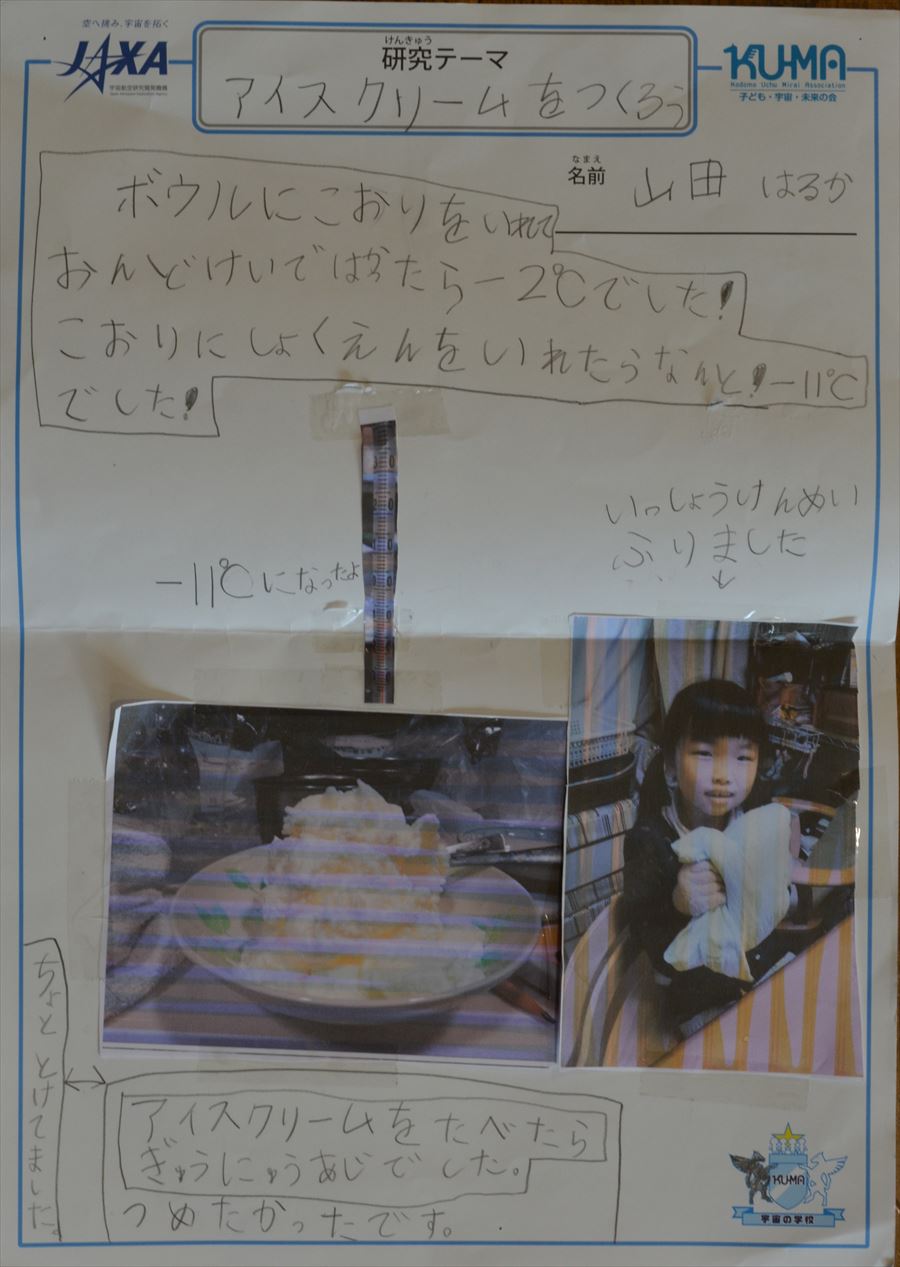 空へ挑み、宇宙を拓く
JAXA
宇宙航空研究開発機構
Japan Aerospace Exploration Agency
けんきゅう
研究テーマ
アイスクリームをつくろう
KU-MA
Kodomo Uchu Mirai Association
子ども・宇宙・未来の会
なまえ
名前 山田 はるか
ボウルにこおりをいれて
おんどけいではかたら-2℃でした!
こおりにしょくえんをいれたらなんと!-11℃
でした!
-11℃になったよ
いっしょうけんめい
ふりました
↓
ちょととけてました。
アイスクリームをたべたら
ぎゅうにゅうあじでした。
つめたかったです。
KU-MA
宇宙の学校